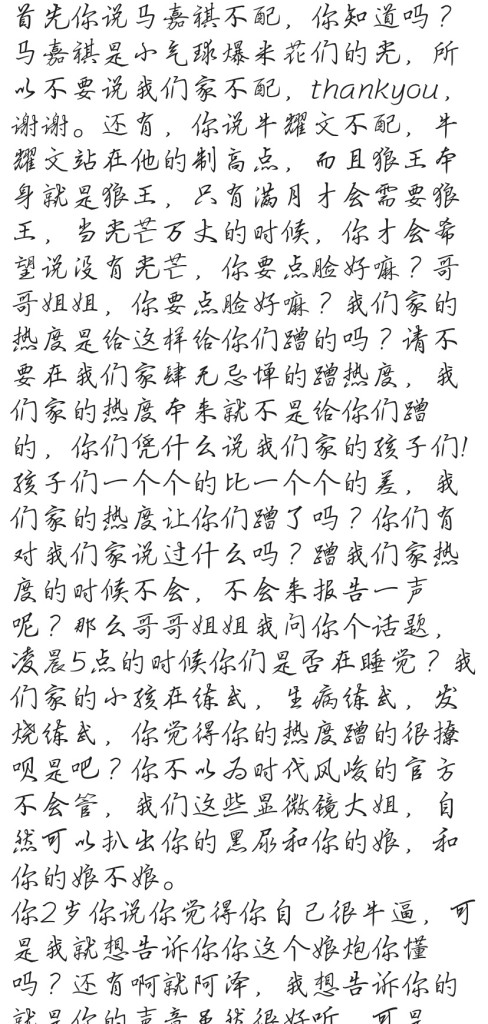 首先你说马嘉祺不配，你知道吗？
马嘉祺是小气球爆米花们的光，所
以不要说我们家不配，thankyou，
谢谢。还有，你说牛耀文不配，牛
耀文站在他的制高点，而且狼王本
身就是狼王，只有满月才会需要狼
王，当光芒万丈的时候，你才会希
望说没有光芒，你要点脸好嘛？哥
哥姐姐，你要点脸好嘛？我们家的
热度是给这样给你们蹭的吗？请不
要在我们家肆无忌惮的蹭热度，我
们家的热度本来就不是给你们蹭
的，你们凭什么说我们家的孩子们！
孩子们一个个的比一个个的差，我
们家的热度让你们蹭了吗？你们有
对我们家说过什么吗？蹭我们家热
度的时候不会，不会来报告一声
呢？那么哥哥姐姐我问你个话题，
凌晨5点的时候你们是否在睡觉？我
们家的小孩在练武，生病练武，发
烧练武，你觉得你的热度蹭的很撩
呗是吧？你不以为时代风峻的官方
不会管，我们这些显微镜大姐，自
然可以扒出你的黑尿和你的娘，和
你的娘不娘。
你2岁你说你觉得你自己很牛逼，可
是我就想告诉你你这个娘炮你懂
吗？还有啊就阿泽，我想告诉你的
就是你的声音虽然很好听，可是